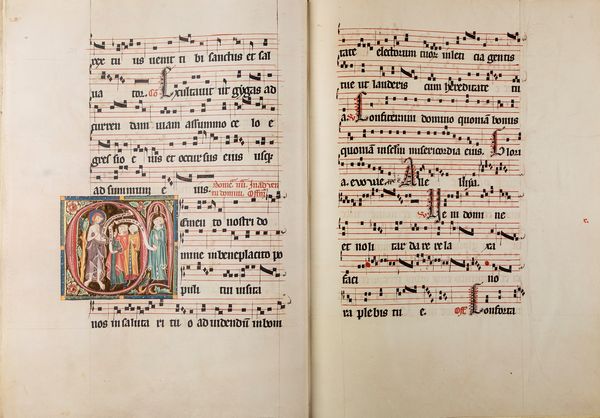 rex tu us venit ti bi sanctus et sal
ua tor. Co Exultauit ut gygas ad
curren dam uiam a summo ce lo e
gres sio e ius et occursus eius usqz
ad summum e ius.
Domi
emen to nostri do
mine in beneplacito po
puli tui uisita
nos in saluta ri tu o ad uidendum in bon
tate electorum tuor in leti cia gentis
tue ut lauderis cum hereditate tu
a. Confitemini domino quoniam bonus
quoniam in seculum misericordia eius. Glori
a. euouae. Alle luia.
Ue ni domi ne
et noli tar da re re la xa
faci no
ra plebis tu e. Off Conforta